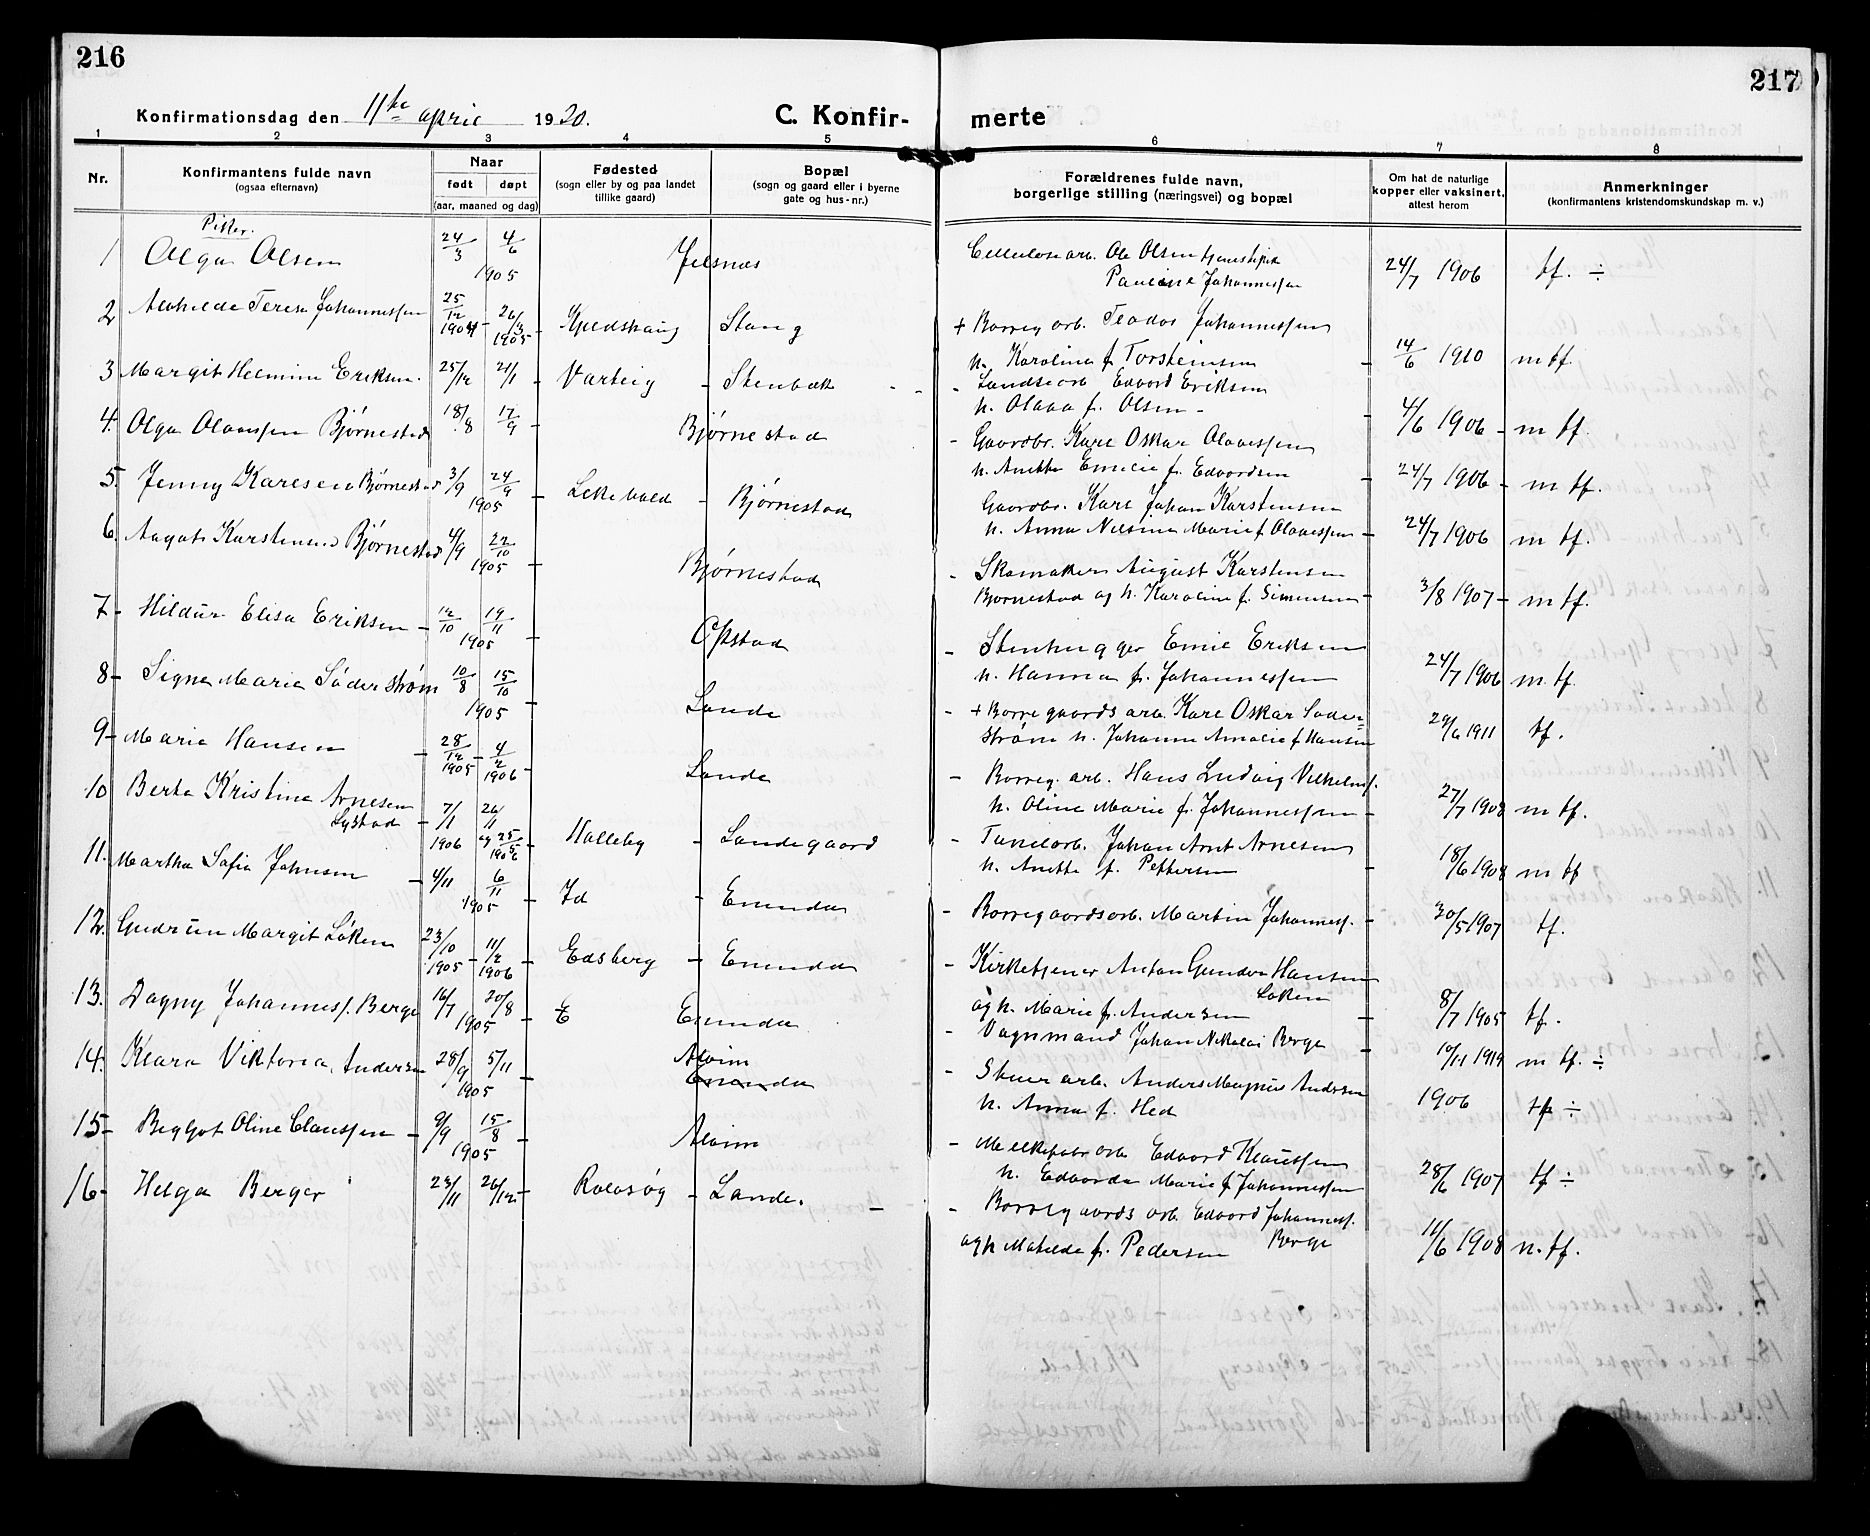 216
217
Konfirmationsdag den 11te april 1920.
C. Konfirmerte
1 2 3 4 5 6 7 8
Nr.
Konfirmantens fulde navn
(ogsaa efternavn)
Naar
født døpt
(aar, maaned og dag)
Fødested
(sogn eller by og paa landet
tillike gaard)
Bopæl
(sogn og gaard eller i byerne
gate og hus-nr.)
Forældrenes fulde navn,
borgerlige stilling (næringsvei) og bopæl
Om hat de naturlige
kopper eller vaksinert,
attest herom
Anmerkninger
(konfirmantens kristendomskundskap m. v.)
Piker.
1 Olga Olsen 24/3 4/6 1905 Jelsnæs Cellulosearb. Ole Olsen
Pauline Johannessen 24/7 1906 tf. ÷
2 Alvhilde Terese Johannessen 25/12 1904 - 26/3 1905 - Stang + Borreg arb. Teodor Johannessen
h. Karoline f. Torsteinsen - 14/6 1910 m tf.
3 Margit Helmine Eriksen. 25/12 21/1 - Varteig - Stenbæk - Edvard Eriksen
h. Olava f. Olsen - 4/6 1906 - m tf.
4. Olga Olavessen Bjørnestad 18/8 17/9 - Bjørnestad - Gaardbr. Karl Oskar Olavessen
h. Anette Emilie f. Edvardsen - 24/7 1906 - m tf.
5. Jenny Karlsen Bjørnestad 3/9 24/9 1905 - - Bjørnestad Gaardbr. Karl Johan Karstensen
h. Anna Nilsine Marie f. Olavessen - 24/7 1906 m tf.
6. Aagot Karstensen Bjørnestad 4/9 22/10 1905 - Bjørnestad - Skomaker August Karstensen
Bjørnestad og h. Karoline f. Simensen - 3/8 1907 - m tf.
7 - Hildur Elisa Eriksen - 12/10 19/11 1905 - Opstad - Stenhugger Emil Eriksen
h. Hanna f. Johannessen 24/7 1906 m tf.
8 - Signe Marie Söderström 10/8 15/10 1905 Lande - + Borregaards arb. Karl Oskar Söder=
ström h. Johanne Amalie f Hansen 29/6 1911 tf.
9 - Marie Hansen - 28/12 1905 - 4/2 1906 - Lande - Borreg. arb. Hans Ludvig Vilhelms.
h. Oline Marie f. Johannessen - 27/7 1908 m tf.
10 Berta Kristine Arnesen
Lystad - 7/1 1906 26/11 og 25/5 1906 - Halleby - Landegaard - Tunelarb. Johan Arnt Arnesen
h. Anette f. Pettersen - 18/6 1908 m tf
11. Martha Sofie Johnsen - 4/11 6/11 1905 - Id - Enenda - Borregaardsarb. Martin Johanness. - 30/5 1907 tf.
12. Gudrun Margit Løken 23/10 1905 - 11/2 1906 - Eidsberg - Enenda - Kirketjener Anton Gunder Hansen
Løken
og h. Marie f. Andersen - 8/7 1905 tf.
13. Dagny Johanness. Berge 16/7 20/8 1905 - Enenda - Vognmand Johan Nikolai Berge - 10/11 1919 m tf. ÷
14. Klara Viktoria Andersen 28/9 5/11 1905 - Alvim
Enenda - Skur arb. Anders Magnus Andersen
h. Anna f. Hed 1906 tf ÷
15 - Beggot Oline Claussen - 9/9 15/8 1905 - Alvim - Melkefabr arb. Edvard Klaussen
h. Edvarda Marie f Johannessen 28/6 1907 tf ÷
16 - Helga Berger 23/11 26/12 - Rolvsøy - Lande. - - Borregaards arb. Edvard Johanness.
Berge
og h Matilde f. Pedersen 11/6 1908 n. tf.